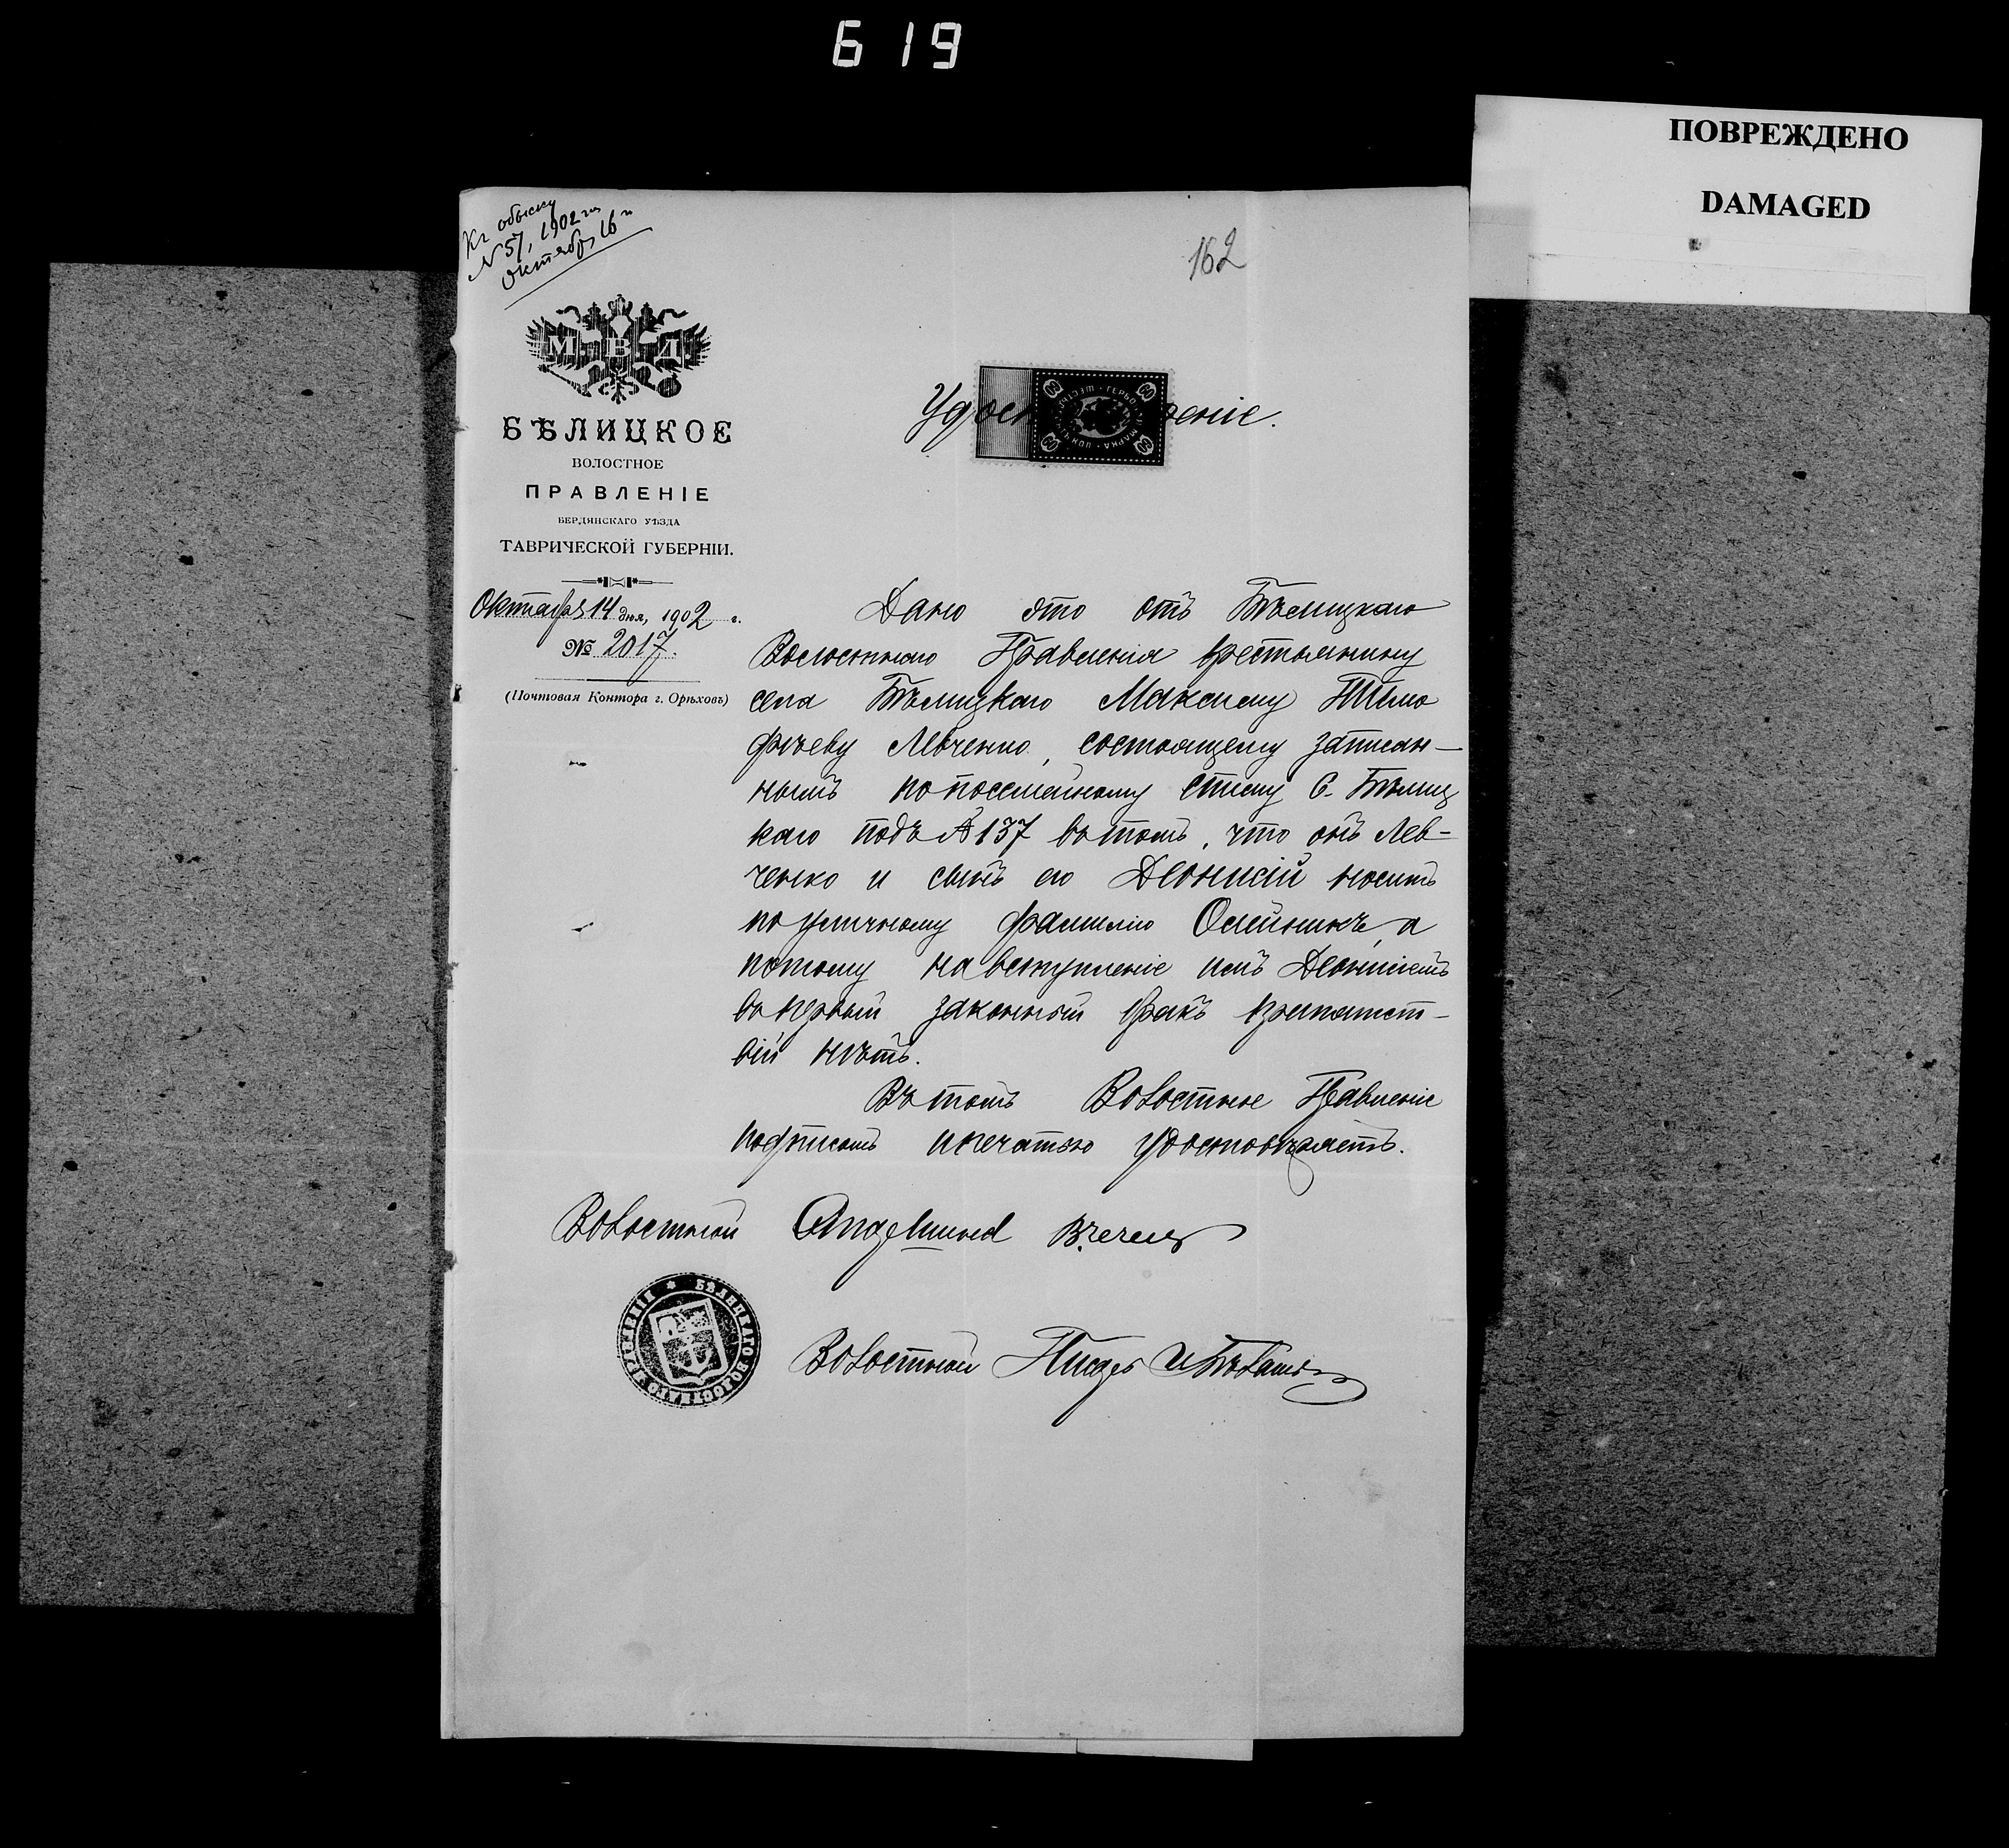 619
ПОВРЕЖДЕНО
DAMAGED
Къ обыску
№ 57, 1902 го
октября 16 го
162
М В Д
БѢЛИЦКОЕ
ВОЛОСТНОЕ
ПРАВЛЕНІЕ
БЕРДЯНСКАГО УѢЗДА
ТАВРИЧЕСКОЙ ГУБЕРНІИ.
Октября 14 дня, 1902 г.
№ 2017.
(Почтовая Контора г. Орѣховъ)
Удостовѣреніе.
60 60
60 60
ГЕРБОВАЯ МАРКА
Дано это отъ Бѣлицкаго
Волостнаго Правленія крестьянину
села Бѣлицкаго Максиму Тимо
фѣеву Левченко, состоящему записан-
нымъ по посемейному списку с. Бѣлиц
каго подъ № 137 въ томъ, что онъ Лев-
ченко и сынъ его Деонисій носитъ
по уличному фамилію Олейникъ, а
потому на вступленіе имъ Деонисіемъ
въ первый законный бракъ препятст-
вій нѣтъ.
Въ томъ Волостное Правленіе
подписомъ и печатью удостовѣряетъ.
Волостной
Волостной Писарь
БѢЛИЦКАГО ВОЛОСТНАГО ПРАВЛЕНІЯ